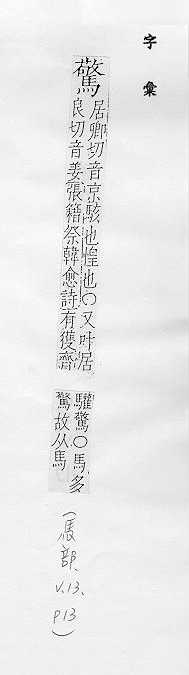 字彙
驚
居卿切音京駭也惶也○又叶居
良切音姜張籍祭韓愈詩有獲齊
驩驚○馬多
驚故从馬
(馬部、
V.13、
P13)